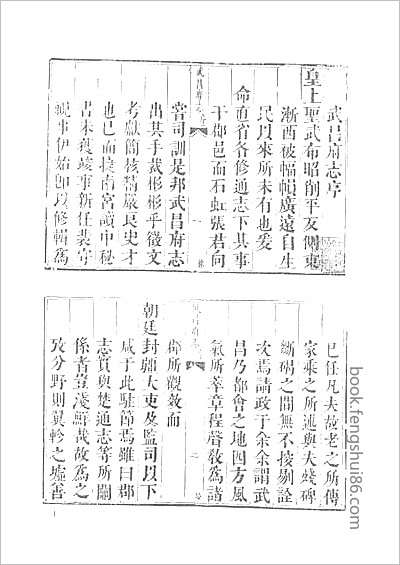 武昌府志序
皇上聖武布昭削平反側東
漸西被幅輯廣遠自生
民以來所未有也爰
命直省各修通志下其事
于郡邑而石虹張君向
武昌府志 序
一
嘗司訓是邦武昌府志
出其手裁彬彬乎徵文
考獻簡核精嚴良史才
也已而捷南宮讀中秘
書未獲竣事新任裴守
視事伊始卽以修輯為
已任凡夫故老之所傳
家乘之所述與夫殘碑
斷碣之間無不披剔詮
次焉請政于余余謂武
昌乃都會之地四方風
氣所萃章程聲敎為諸
武昌府志
二
郡所觀效而
朝廷封疆大吏及監司以下
咸于此駐節焉雖曰郡
志實與楚通志等所關
係者豈淺鮮哉故為之
攷分野則翼軫之墟善
book.fengshui86.com